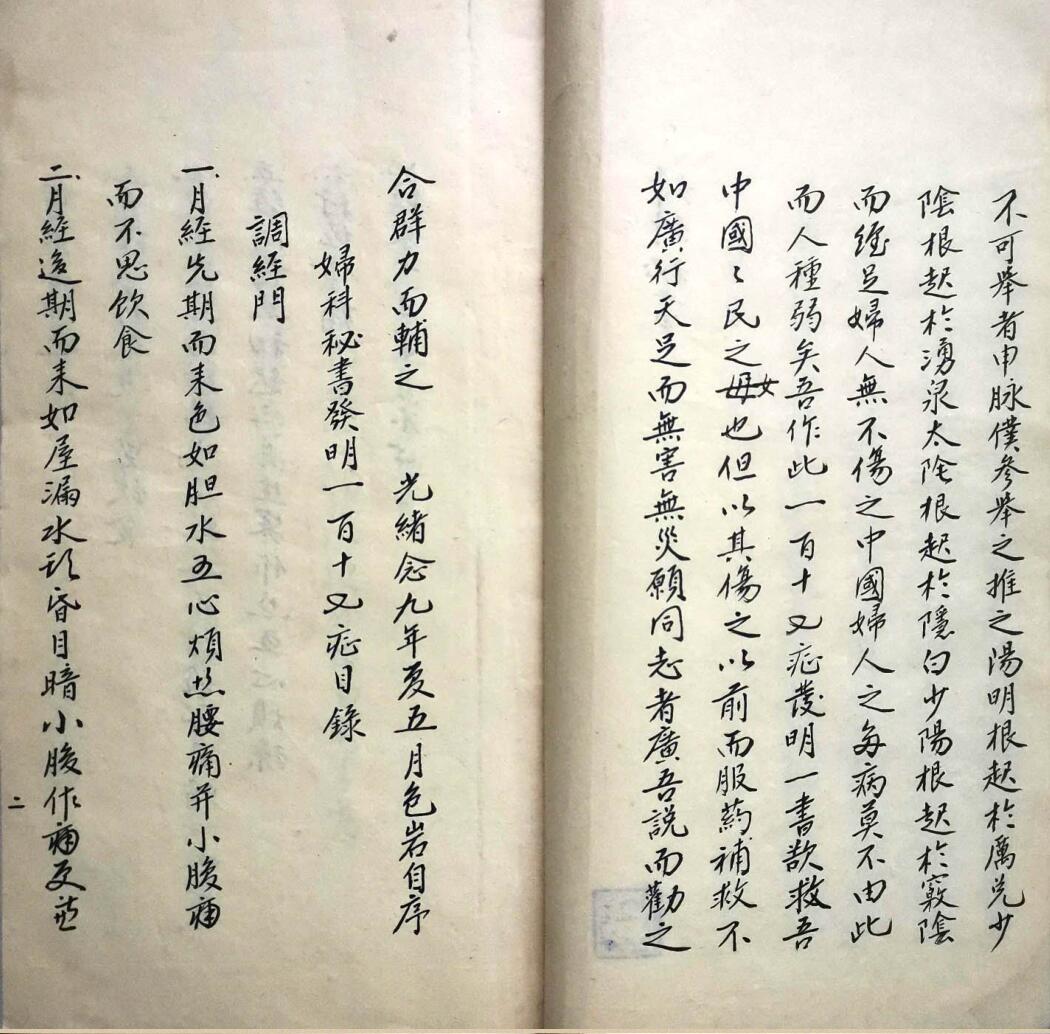 不可舉者申脉僕參舉之推之陽明根起於厲兌少
陰根起於湧泉太陰根起於隱白少陽根起於竅陰
而纏足婦人無不傷之中國婦人之每病莫不由此
而人種弱矣吾作此一百十又症發明一書欲救吾
中國〻民之母女也但以其傷之以前而服药補救不
如廣行天足而無害無災願同志者廣吾說而勸之
合群力而輔之 光緒念九年夏五月色岩自序
婦科秘書發明一百十又症目錄
調經門
一月經先期而来色如胆水五心煩热腰痛并小腹痛
而不思飲食
二月經过期而来如屋漏水頭昏目暗小腹作痛更並
二